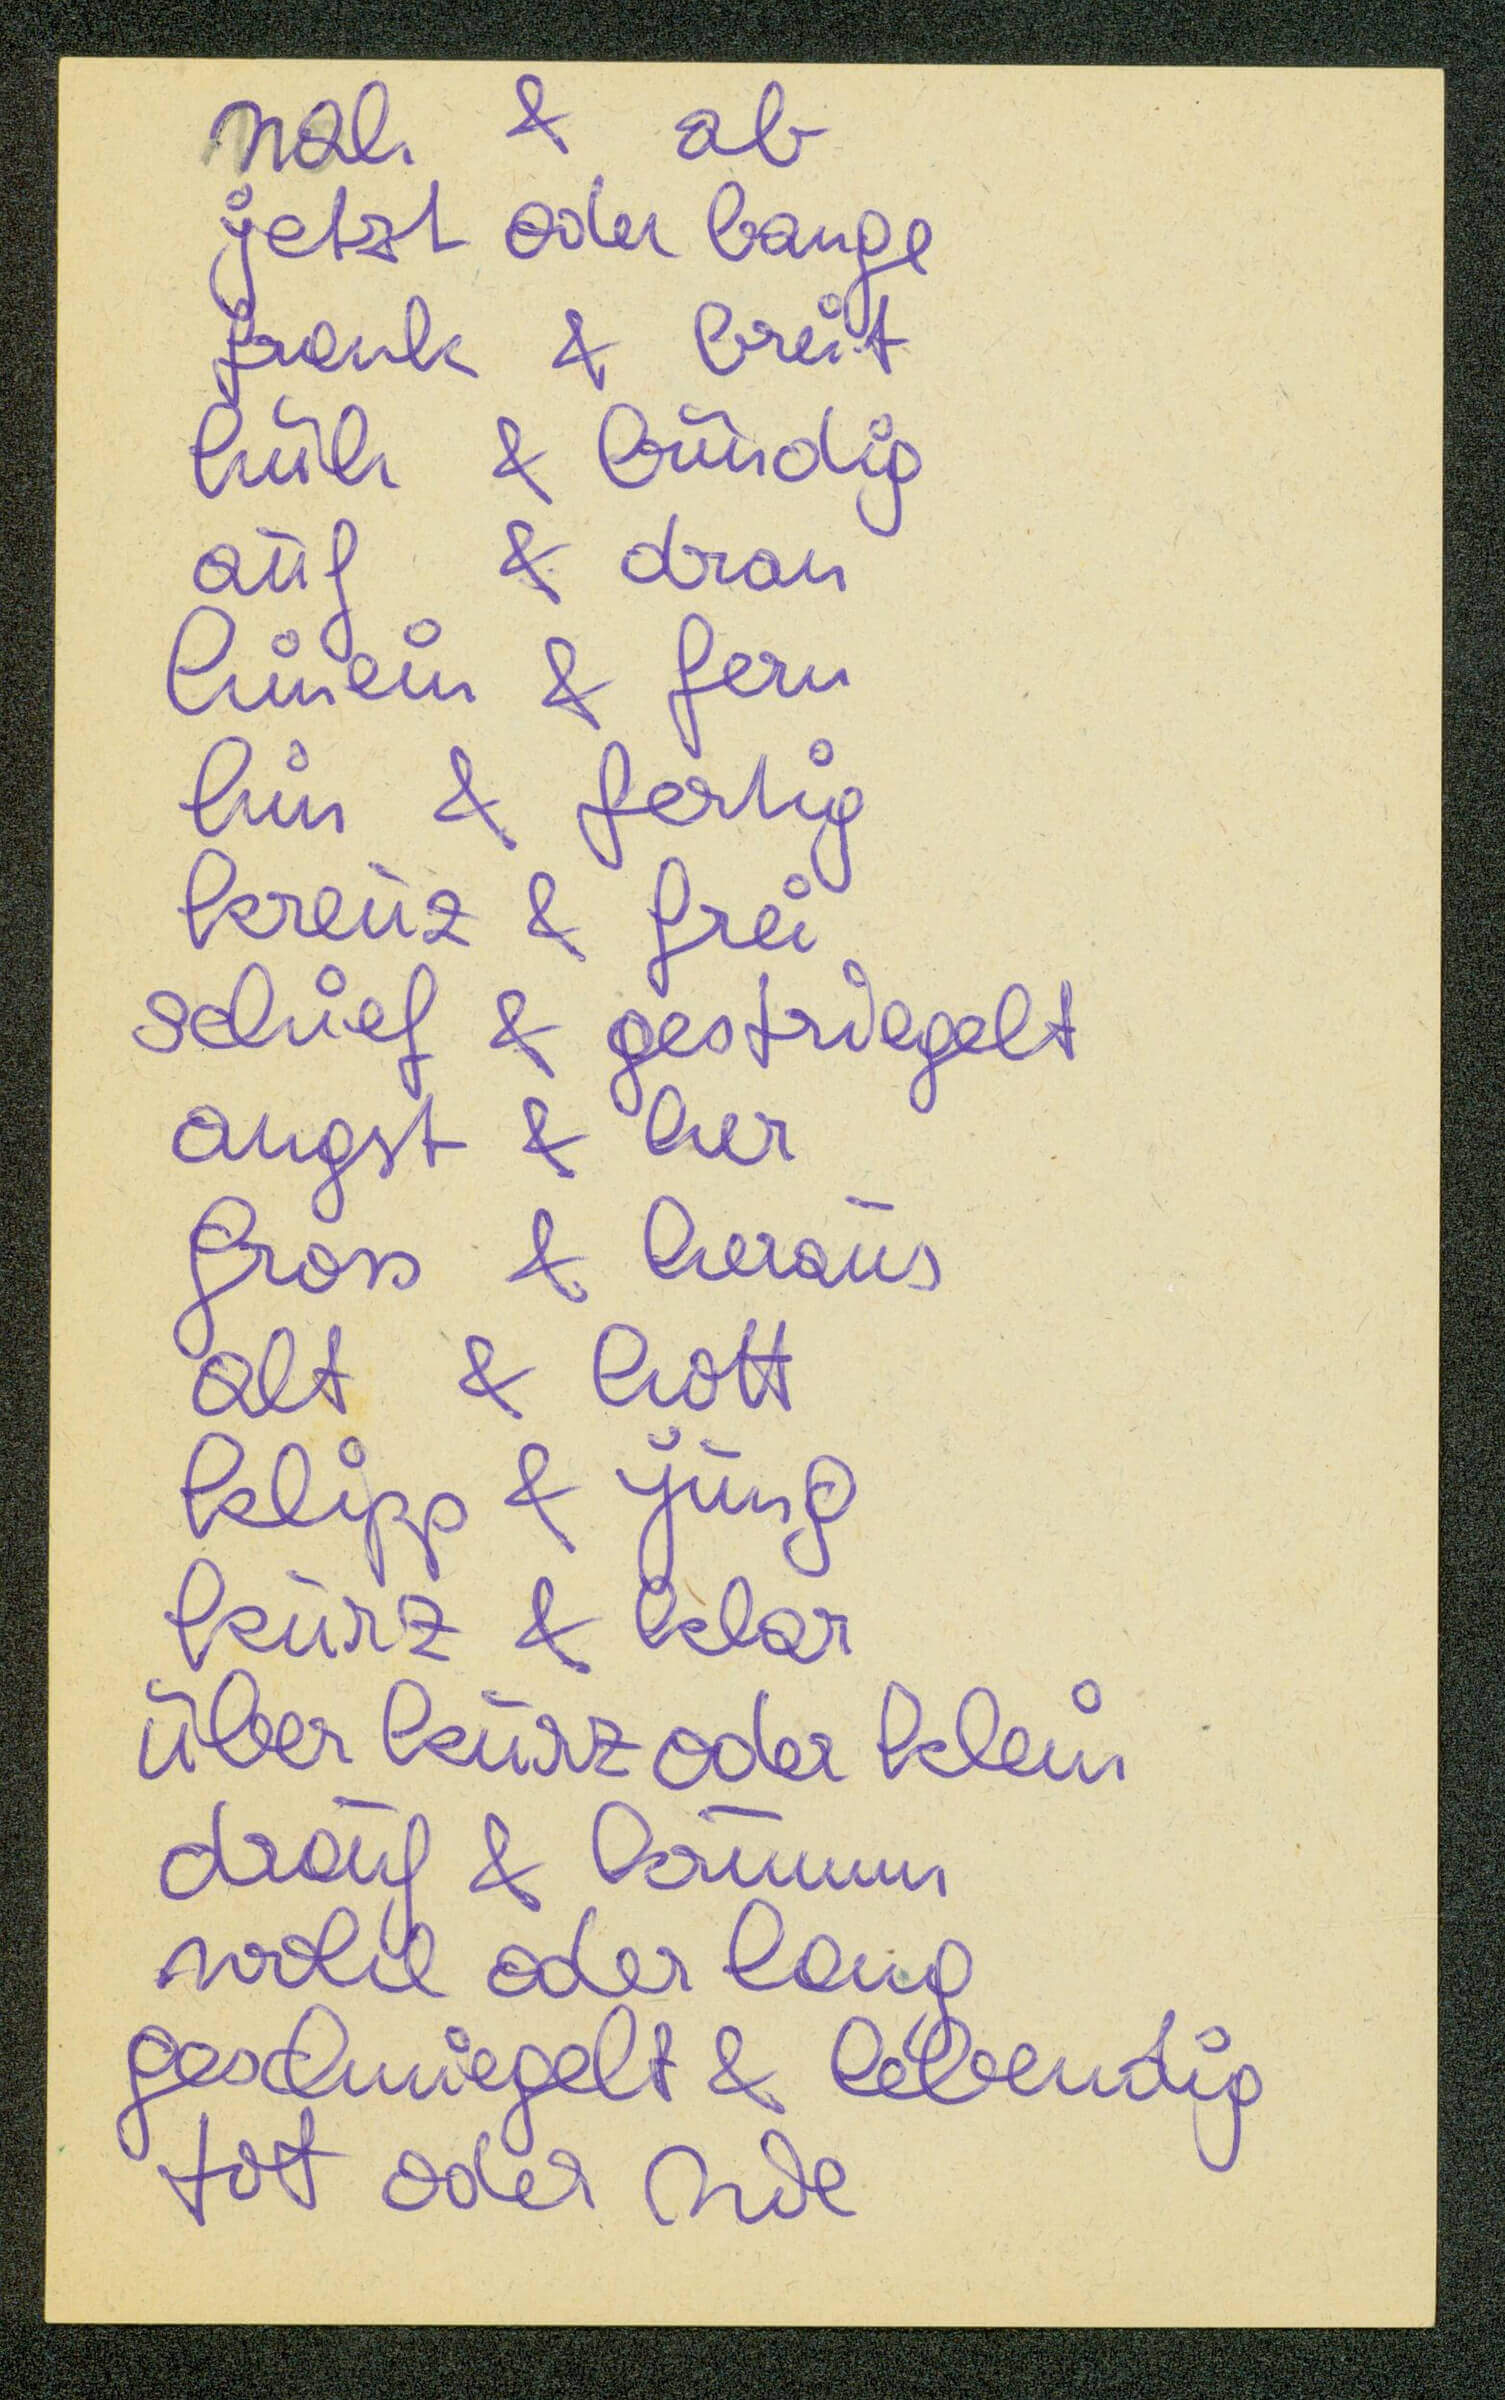 nah & ab
jetzt oder bange
frank & breit
hüh & bündig
auf & dran
hinein & fern
hin & fertig
kreuz & frei
schief & gestriegelt
angst & her
gross & heraus
alt & hott
klipp & jung
kurz & klar
über kurz oder klein
drauf & krumm
wohl oder lang
geschniegelt & lebendig
tot oder nie